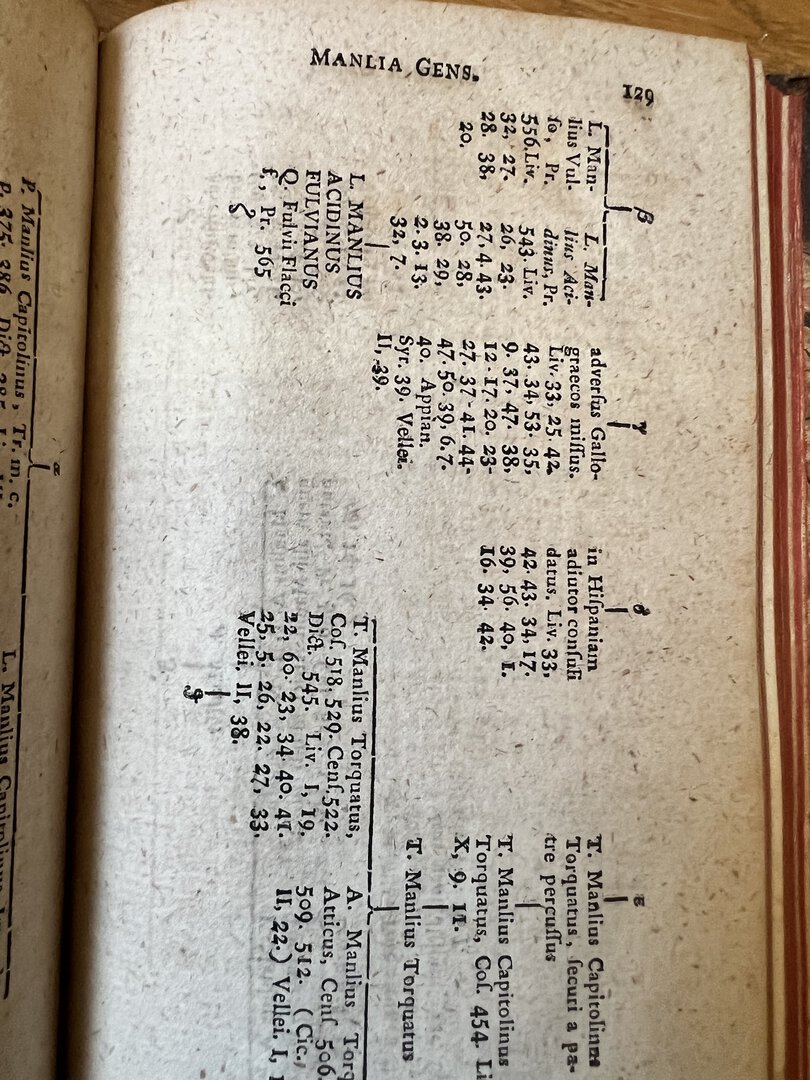 MANLIA GENS.
129
β
L. Man-
lius Vul-
ſo, Pr.
556. Liv.
32, 27.
28. 38,
20.
L. Man-
lius Aci-
dinus, Pr.
543. Liv.
26, 23.
27, 4. 43.
50. 28,
38. 29,
2. 3. 13.
32, 7.
L. MANLIUS
ACIDINUS
FULVIANUS
Q. Fulvii Flacci
f., Pr. 565
ζ
γ
adverſus Gallo-
graecos miſſus.
Liv. 33, 25. 42.
43. 34, 53. 35,
9. 37, 47. 38,
12. 17. 20. 23-
27. 37-41. 44-
47. 50. 39, 6. 7.
40. Appian.
Syr. 39. Vellei.
II, 39.
δ
in Hiſpaniam
adiutor conſuli
datus. Liv. 33,
42. 43. 34, 17.
39, 56. 40, 1.
16. 34. 42.
ε
T. Manlius Capitolinus
Torquatus, ſecuri a pa-
tre percuſſus
T. Manlius Capitolinus
Torquatus, Coſ. 454. Li
X, 9. 11.
T. Manlius Torquatus
T. Manlius Torquatus,
Coſ. 518. 529. Cenſ. 522.
Dict. 545. Liv. I, 19.
22, 60. 23, 34. 40. 41.
25, 5. 26, 22. 27, 33.
Vellei. II, 38.
ϑ
A. Manlius Torq
Atticus, Cenſ. 506.
509. 512. (Cic.,
II, 22.) Vellei. I,
α
P. Manlius Capitolinus, Tr. m. c.
p. 375. 386. Dict. 385.
L. Manlius Capitolinus